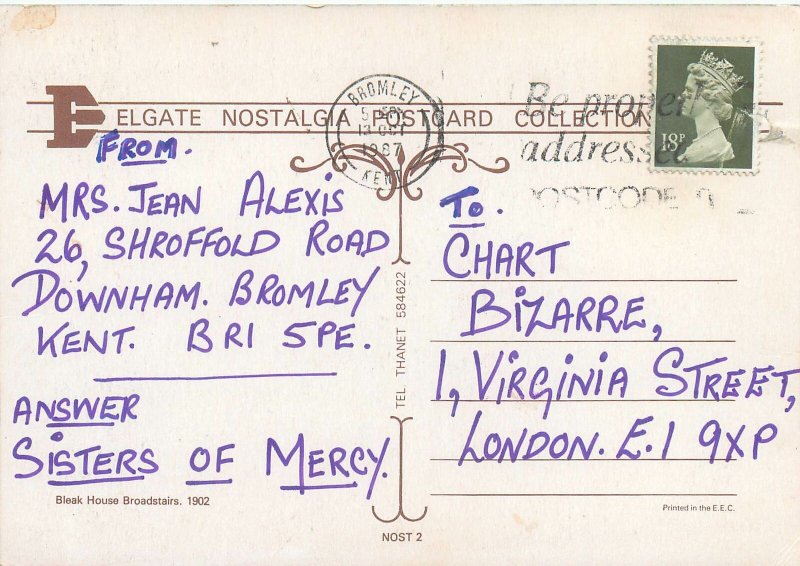 ELGATE NOSTALGIA POSTCARD COLLECTION
BROMLEY
13 OCT
1987
KENT
Be properly
addressed
POSTCODE
18P
FROM.
MRS. JEAN ALEXIS
26, SHROFFOLD ROAD
DOWNHAM. BROMLEY
KENT. BR1 5PE.
ANSWER
SISTERS OF MERCY.
Bleak House Broadstairs. 1902
TEL THANET 584622
NOST 2
To.
CHART
BIZARRE,
1, VIRGINIA STREET,
LONDON. E.1 9XP
Printed in the E.E.C.